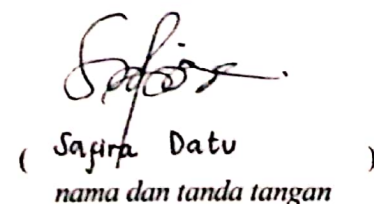 ( Safira Datu )
nama dan tanda tangan